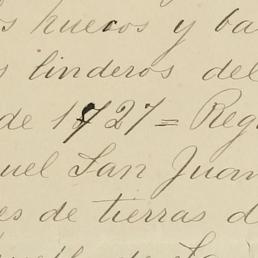 s huecos y ba
s linderos del
de 1727 = Reg
uel San Juan
es de tierras d